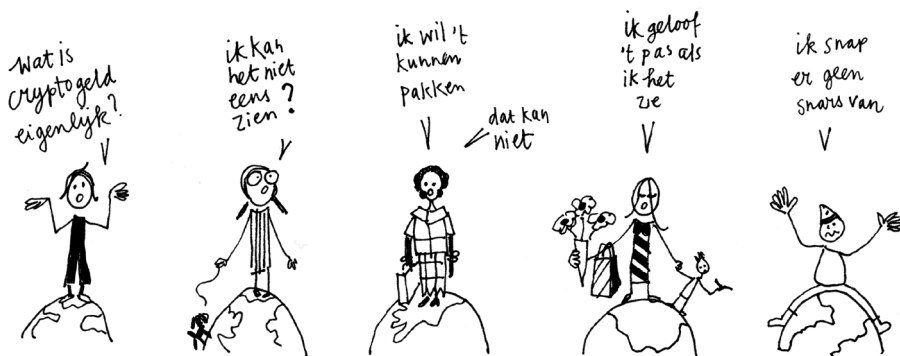 wat is
cryptogeld
eigenlijk?
ik kan
het niet
eens
zien?
ik wil 't
kunnen
pakken
dat kan
niet
ik geloof
't pas als
ik het
zie
ik snap
er geen
snars van